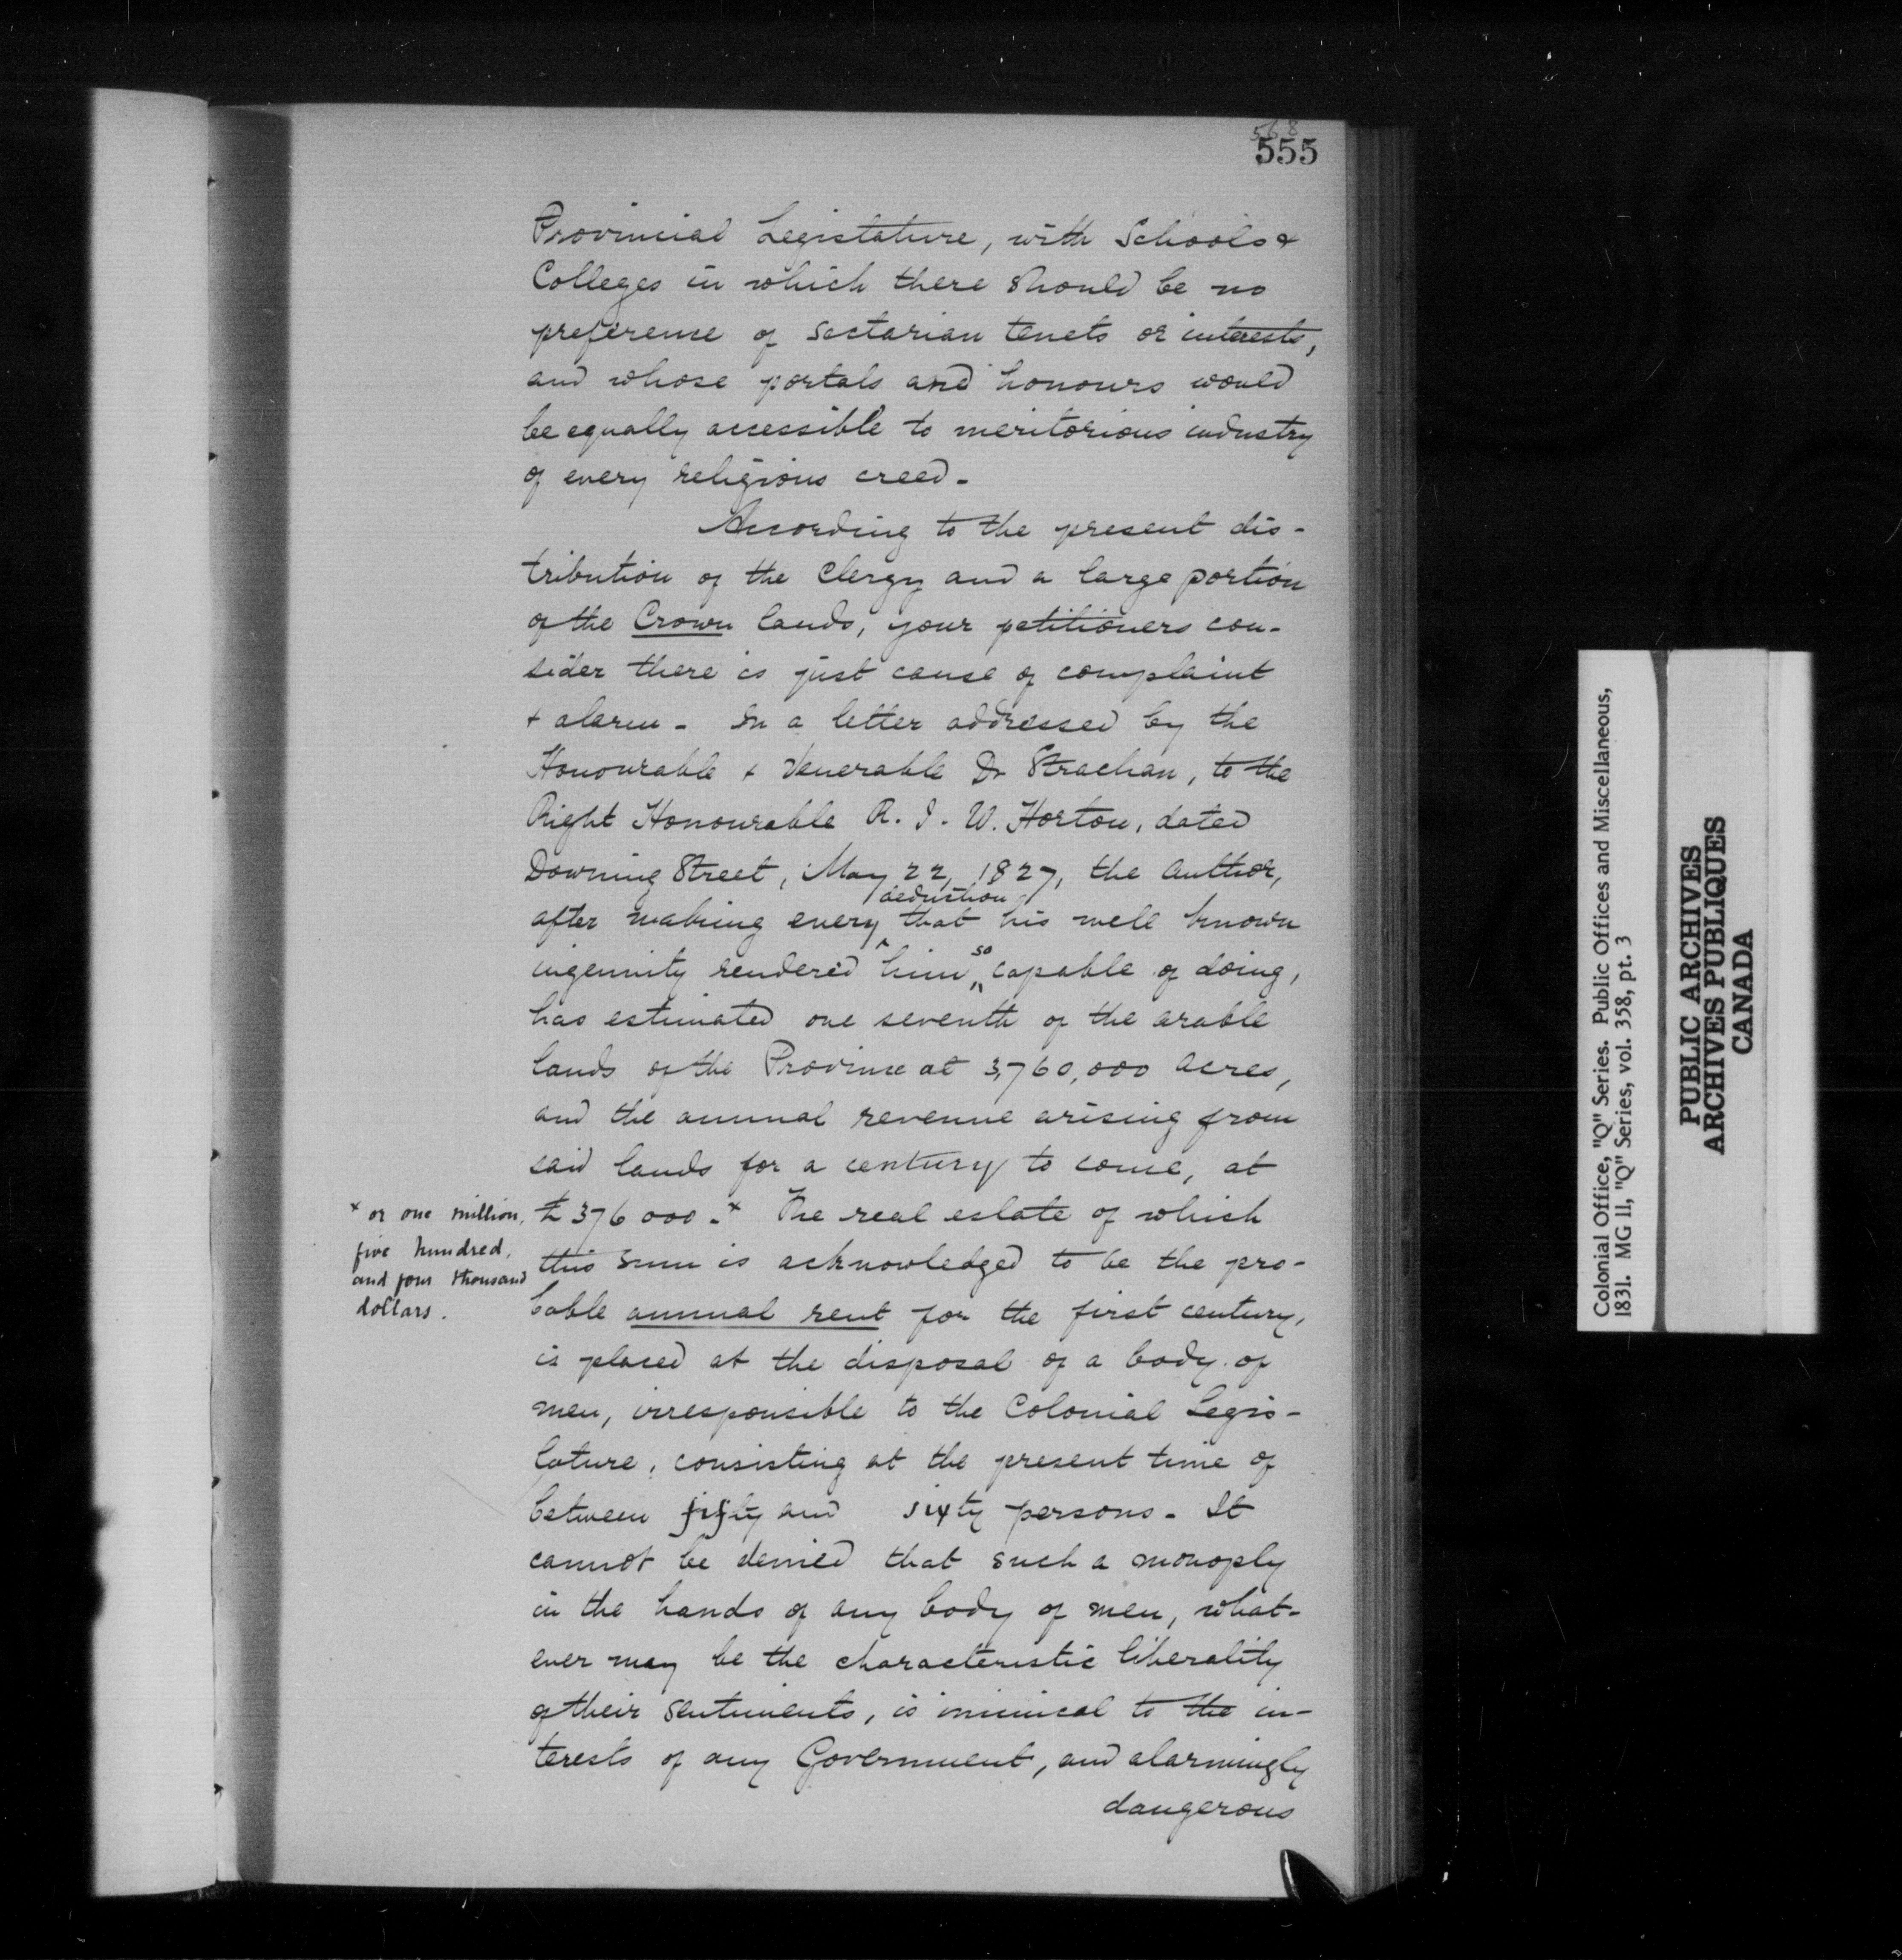 568
555
Provincial Legislature, with Schools &
Colleges in which there should be no
preference of sectarian tenets or interests,
and whose portals and honours would
be equally accessible to meritorious industry
of every religious creed.
According to the present dis-
tribution of the Clergy and a large portion
of the Crown lands, your petitioners con-
sider there is just cause of complaint
& alarm. In a letter addressed by the
Honourable & Venerable Dr Strachan, to the
Right Honourable R. J. W. Horton, dated
Downing Street, May 22, 1827, the author,
after making every deduction that his well known
ingenuity rendered him so capable of doing,
has estimated one seventh of the arable
lands of the Province at 3,760,000 acres,
and the annual revenue arising from
said lands for a century to come, at
£376 000.x The real estate of which
this sum is acknowledged to be the pro-
bable annual rent for the first century,
is placed at the disposal of a body of
men, irresponsible to the Colonial Legis-
lature, consisting at the present time of
between fifty and sixty persons. It
cannot be denied that such a monoply
in the hands of any body of men, what-
ever may be the characteristic liberality
of their sentiments, is inimical to the in-
terests of any Government, and alarmingly
dangerous
x or one million,
five hundred,
and four thousand
dollars.
Colonial Office, "Q" Series. Public Offices and Miscellaneous,
1831. MG 11, "Q" Series, vol. 358, pt. 3
PUBLIC ARCHIVES
ARCHIVES PUBLIQUES
CANADA